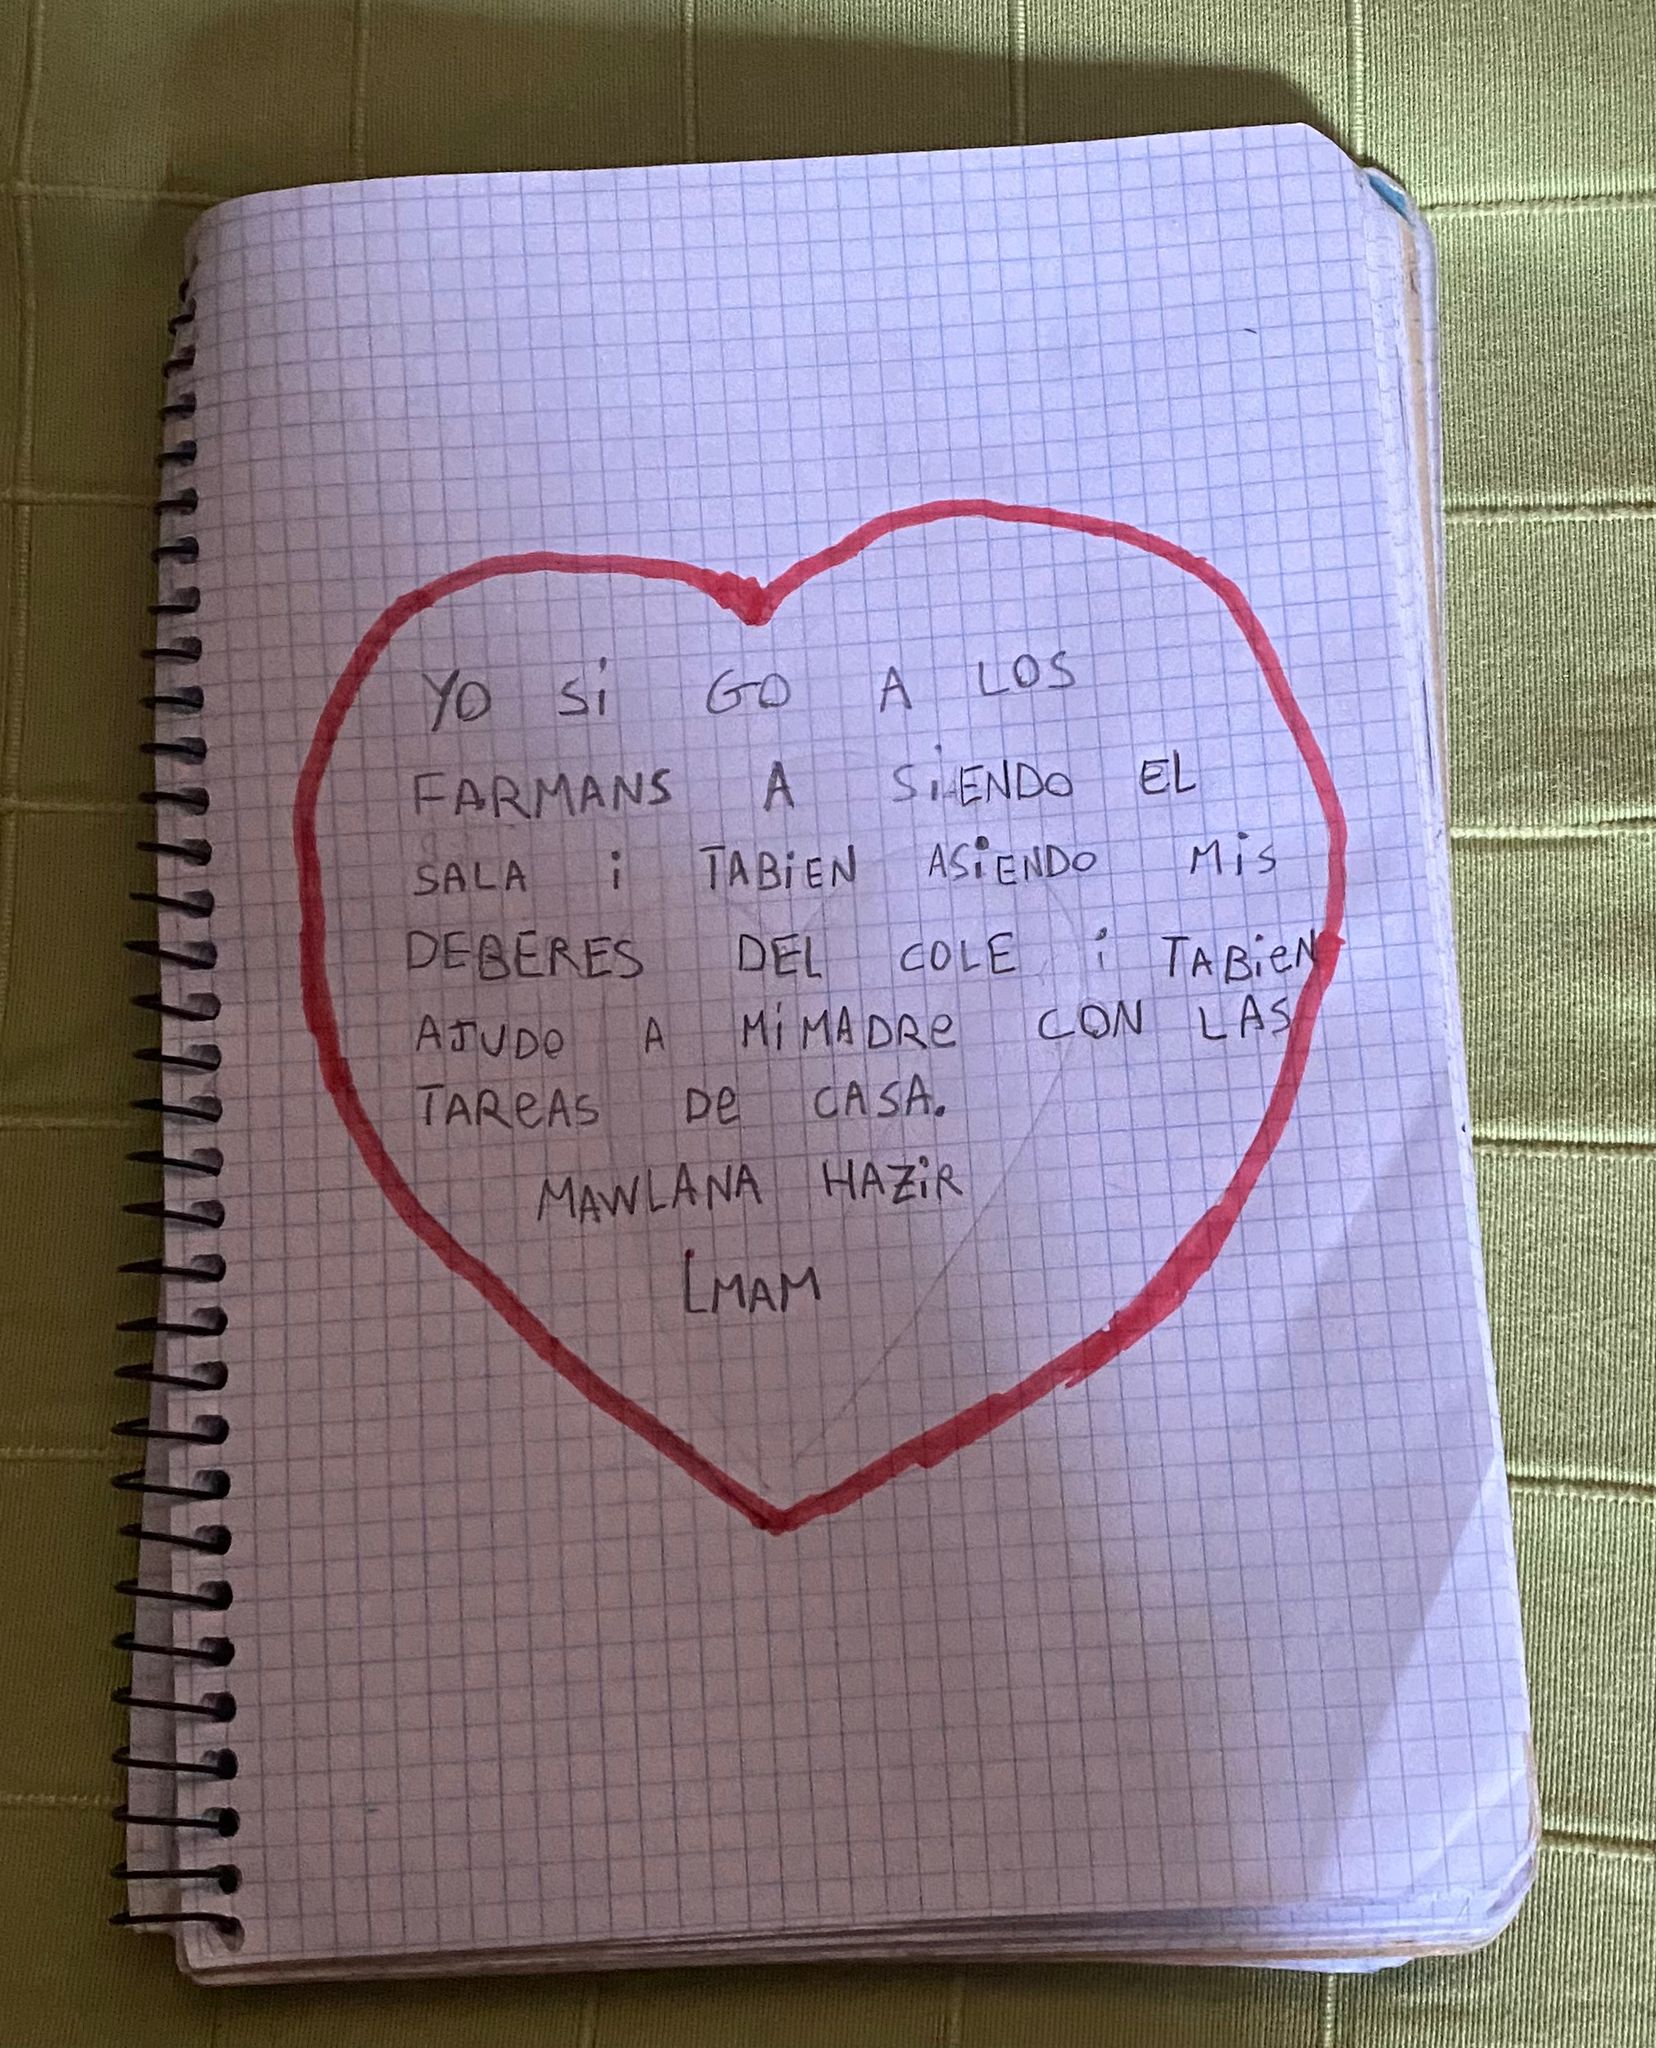 YO Si GO A LOS
FARMANS A SiENDO EL
SALA i TABiEN ASiENDO MiS
DEBERES DEL COLE i TABieN
AJUDO A MiMADRe CON LAS
TAReAS De CASA.
MAWLANA HAZiR
IMAM